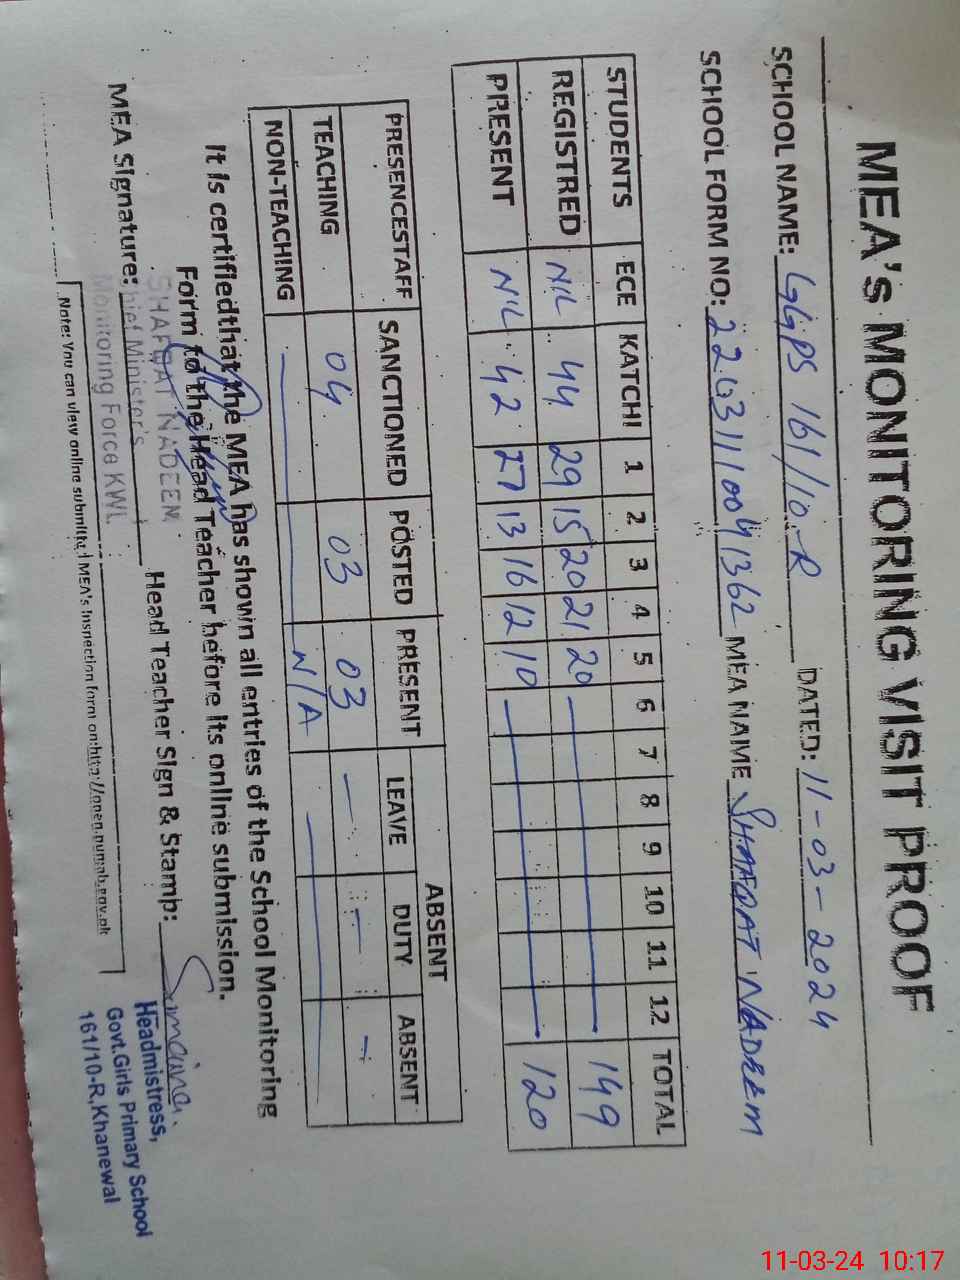 MEA's MONITORING VISIT PROOF
SCHOOL NAME: GGPS 161/10-R DATED: 11-03-2024
SCHOOL FORM NO: 22031110041362 MEA NAME SHAFQAT NADEEM
STUDENTS ECE KATCHI 1 2 3 4 5 6 7 8 9 10 11 12 TOTAL
REGISTRED NIL 44 29 15 20 21 20 149
PRESENT NIL 42 27 13 16 12 10 120
PRESENCESTAFF SANCTIONED POSTED PRESENT ABSENT
LEAVE DUTY ABSENT
TEACHING 04 03 03 - - -
NON-TEACHING N/A
It is certifiedthat the MEA has shown all entries of the School Monitoring
Form to the Head Teacher before its online submission.
SHAFQAT NADEEM
MEA Signature: Head Teacher Sign & Stamp: Sumaira
Chief Minister's
Monitoring Force KWL
Headmistress,
Govt.Girls Primary School
161/10-R,Khanewal
Note: You can view online submitted MEA's Inspection form on:http://open.punjab.gov.pk
11-03-24 10:17